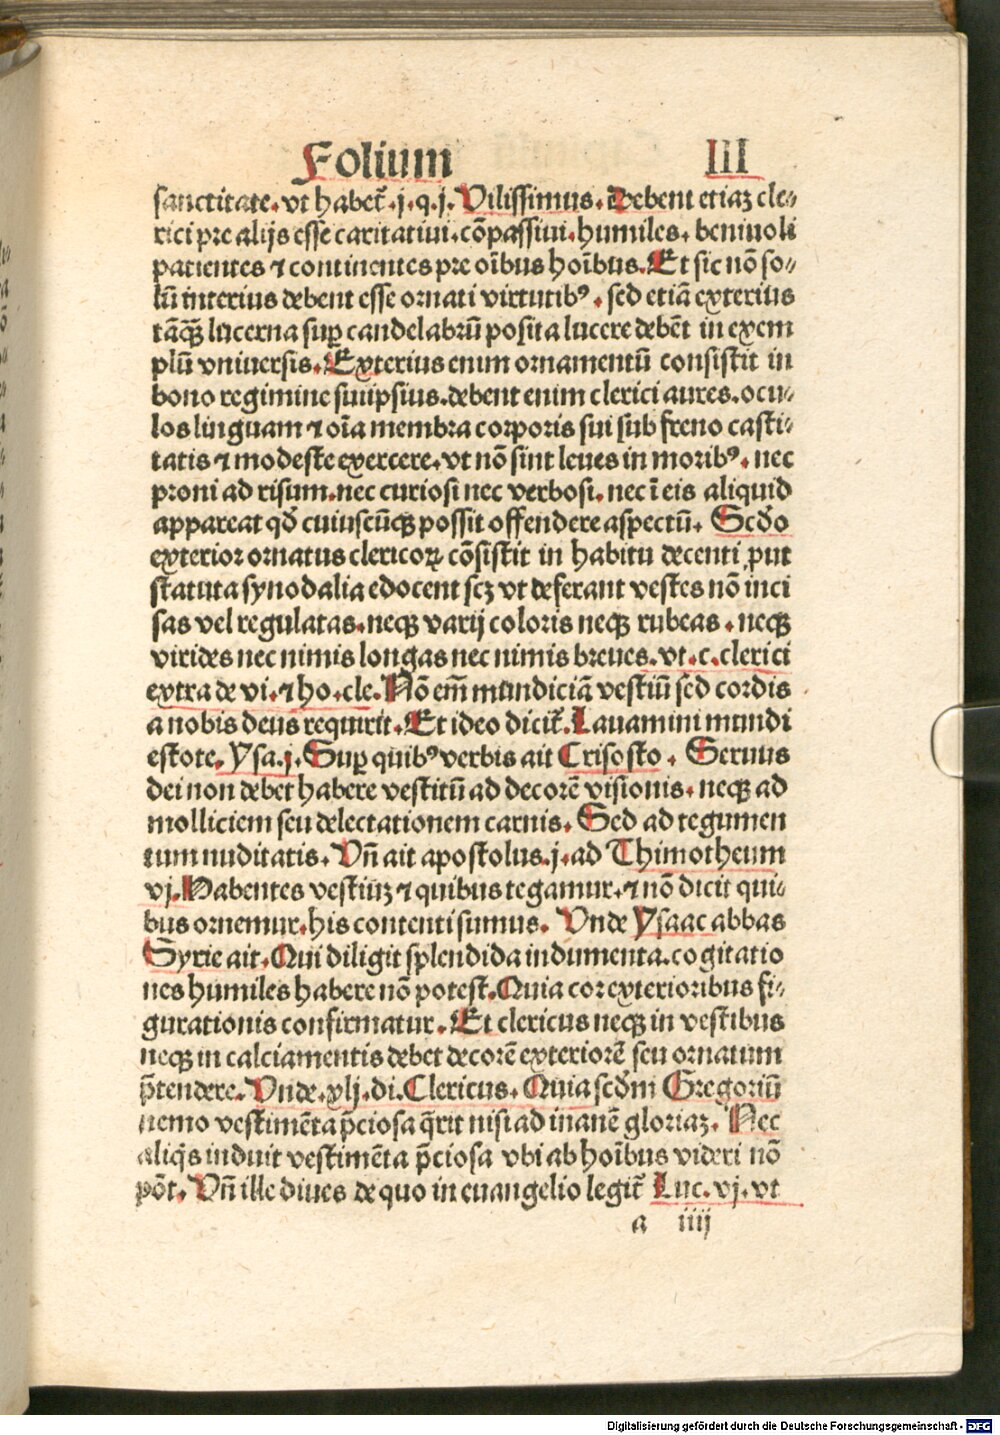 Folium III
sanctitate. vt habet᷑. j. q. j. Vilissimus. Debent etiaꝫ cle⸗
rici pre alijs esse caritatiui. cōpassiui. humiles. beniuoli
patientes ⁊ continentes pre oībus hoībus. Et sic nō so⸗
lū interius debent esse ornati virtutibꝰ. sed etiā exterius
tāꝙ̄ lucerna suꝑ candelabrū posita lucere debēt in exem
plū vniuersis. Exterius enim ornamentū consistit in
bono regimine suiipsius. debent enim clerici aures. ocu⸗
los linguam ⁊ oīa membra corporis sui sub freno casti⸗
tatis ⁊ modeste exercere. vt nō sint leues in moribꝰ. nec
proni ad risum. nec curiosi nec verbosi. nec ī eis aliquid
appareat qd̛ cuiuscūqꝫ possit offendere aspectū. Scd̛o
exterior ornatus clericoꝝ cōsistit in habitu decenti ꝓut
statuta synodalia edocent scꝫ vt deferant vestes nō inci
sas vel regulatas. neqꝫ varij coloris neqꝫ rubeas. neqꝫ
virides nec nimis longas nec nimis breues. vt. c. clerici
extra de vi. ⁊ ho. cle. Nō em̄ mundiciā vestiū sed cordis
a nobis deus requirit. Et ideo dicit᷑. Lauamini mundi
estote. Ysa. j. Suꝑ quibꝰ verbis ait Crisosto. Seruus
dei non debet habere vestitū ad decorē visionis. neqꝫ ad
molliciem seu delectationem carnis. Sed ad tegumen
tum nuditatis. Vn̄ ait apostolus. j. ad Thimotheum
vj. Habentes vestiūꝫ ⁊ quibus tegamur. ⁊ nō dicit qui⸗
bus ornemur. his contenti sumus. Vnde Ysaac abbas
Syrie ait. Qui diligit splendida indumenta. cogitatio
nes humiles habere nō potest. Quia cor exterioribus fi⸗
gurationis confirmatur. Et clericus neqꝫ in vestibus
neqꝫ in calciamentis debet decorē exteriorē seu ornatum
p̄tendere. Vnde. xlj. di. Clericus. Quia scd̛m Gregoriū
nemo vestimēta p̄ciosa q̄rit nisi ad inanē gloriaꝫ. Nec
aliq̇s induit vestimēta p̄ciosa vbi ab hoībus videri nō
pōt. Vn̄ ille diues de quo in euangelio legit᷑ Luc. vj. vt
a iiij
Digitalisierung gefördert durch die Deutsche Forschungsgemeinschaft - DFG